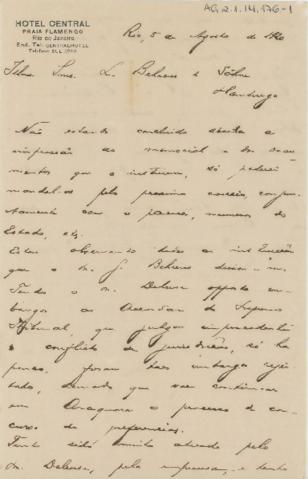 AG.2.1.14.176-1
HOTEL CENTRAL
PRAIA FLAMENGO
Rio de Janeiro
End. Tel. CENTRALHOTEL
Rio, 5 de Agosto de 1920
Illmos Snrs. L. Behrens & Söhne
Hamburgo
Não estando concluida ainda a
impressão do memorial e dos docu-
mentos que o instruem, só poderei
mandal-os pelo proximo correio, conjun-
tamente com o parecer, numeros do
Estado, etc.
Estou observando as instrucções
que o Dr. J. Behrens
Tendo o Dr. opposto em-
bargos ao Accordam do Supremo
Tribunal, que julgou improcedente
o conflicto de jurisdicção, só ha
pouco foram taes embargos rejei-
tados, de modo que vae continuar
em Araraquara o processo de con-
curso de preferencias.
Tenho sido muito atacado pelo
Dr. pela imprensa, e tenho